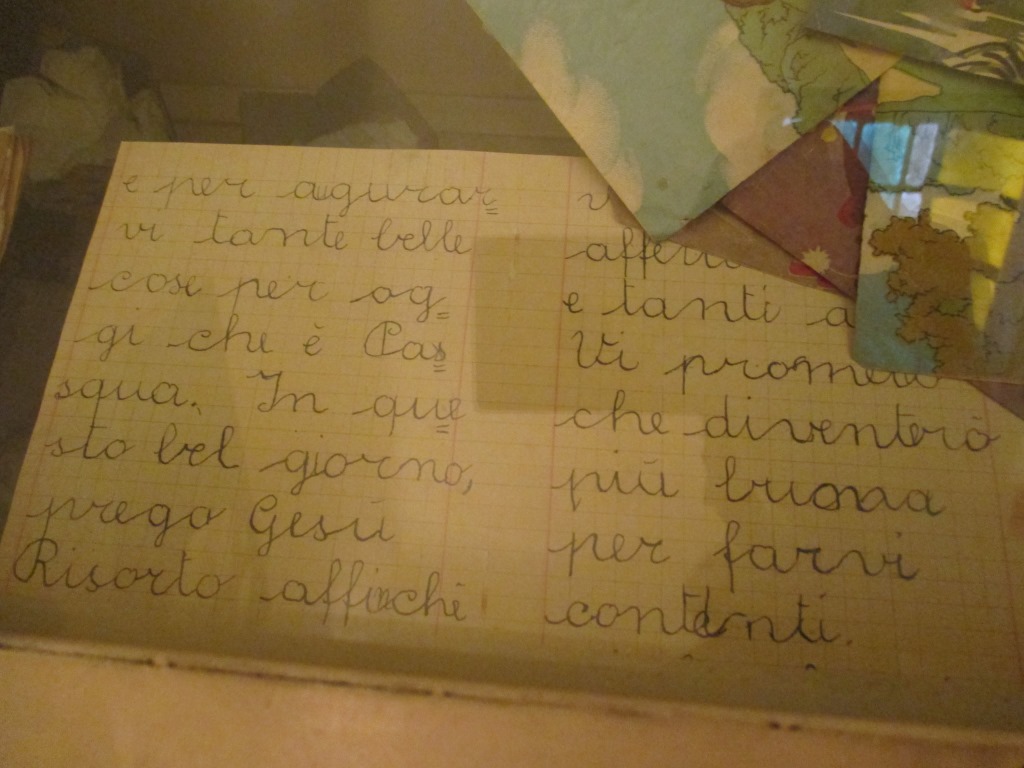 e per agurar=
vi tante belle
cose per og=
gi che è Pas=
squa. In que=
sto bel giorno,
prego Gesù
Risorto affinchè
e tanti
Vi prometto
che diventerò
più buona
per farvi
contenti.